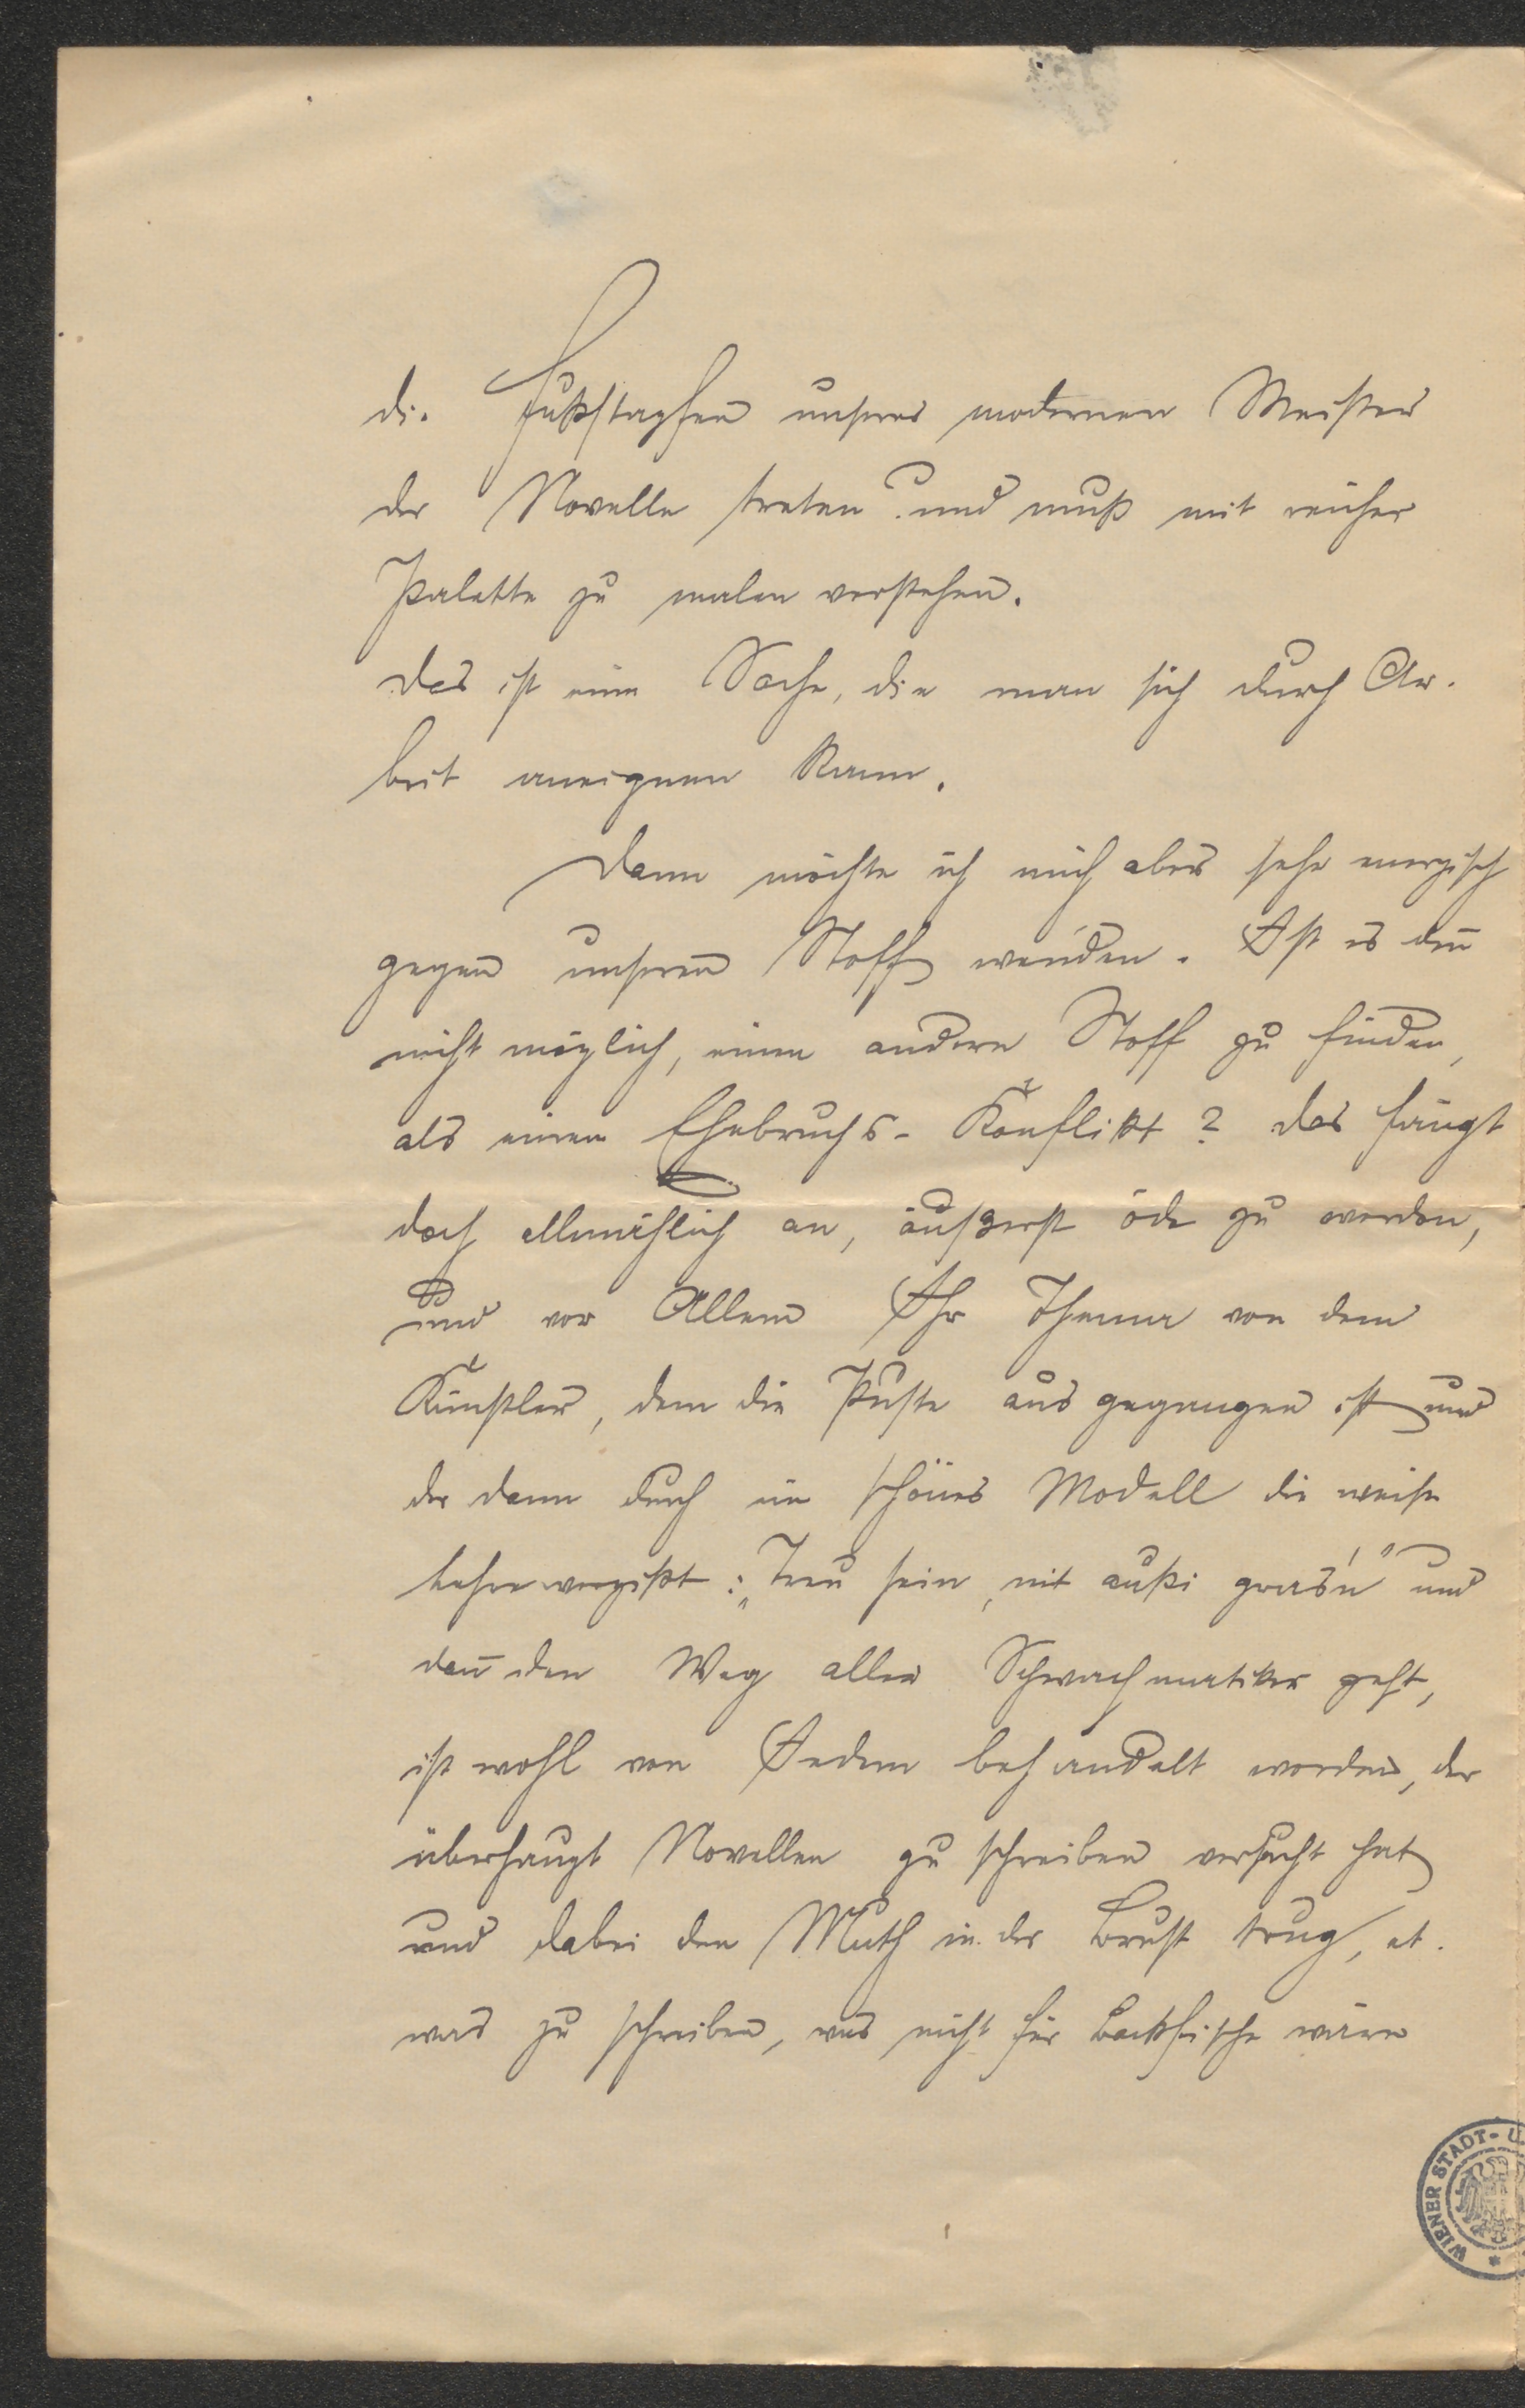 die Fußstapfen unserer modernen Meister
der Novelle treten und muß mit reicher
Palette zu malen verstehen.
Das ist eine Sache, die man sich durch Ar-
beit aneignen kann.
Dann möchte ich mich aber sehr energisch
gegen unseren Stoff wenden. Ist es den̄
nicht möglich, einen andern Stoff zu finden,
als einen Ehebruchs-Konflikt? Das fängt
doch allmählich an, äußerst öde zu werden,
und vor Allem Ihr Thema von dem
Künstler, dem die Puste ausgegangen ist und
der dann durch ein schönes Modell die weise
Lehre vergißt: „Treu sein, nit außi gras'n" und
dan̄ den Weg aller Schwachmatiker geht,
ist wohl von Jedem behandelt worden, der
überhaupt Novellen zu schreiben versucht hat
und dabei den Muth in der Brust trug, et-
was zu schreiben, was nicht für Backfische wäre
WIENER STADT- U